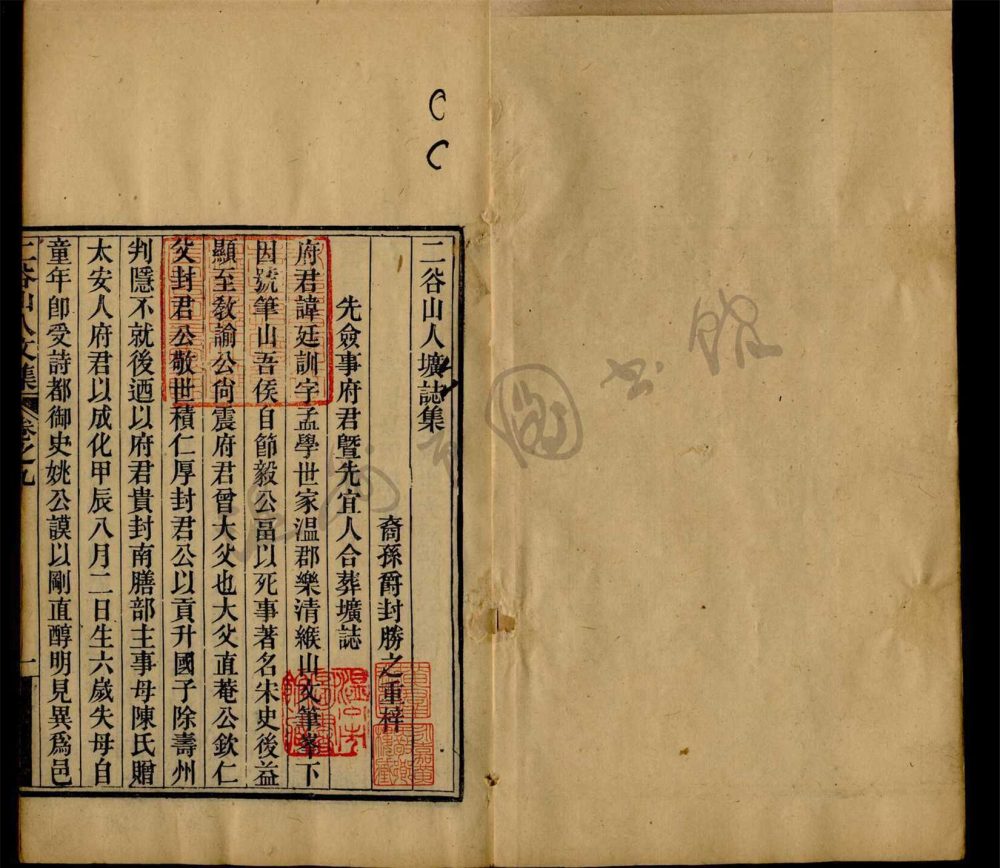 二谷山人壙誌集
裔孫爵封勝之重梓
先僉事府君暨先宜人合葬壙誌
府君諱廷訓字孟學世家温郡樂清緱山文筆峯下
因號筆山吾侯自節毅公畐以死事著名宋史後益
顯至教諭公尙震府君曾大父也大父直菴公欽仁
父封君公敬世積仁厚封君公以貢升國子除壽州
判隱不就後迺以府君貴封南膳部主事母陳氏贈
太安人府君以成化甲辰八月二日生六歲失母自
童年卽受詩都御史姚公謨以剛直醇明見異爲邑
二谷山人文集
卷之九
一
圖書館